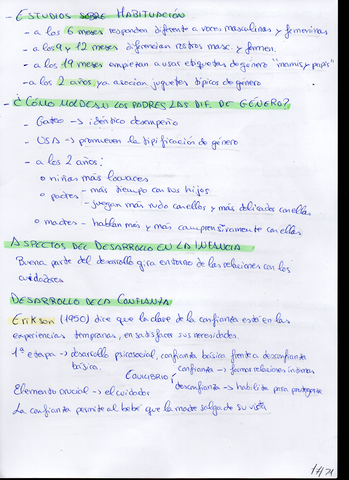 - ESTUDIOS SOBRE HABITUACIÓN
- a los 6 meses responden diferente a voces masculinas y femeninas
- a los 9 y 12 meses diferencian rostros masc. y femen.
- a los 19 meses empiezan a usar etiquetas de género "mamis y papis"
- a los 2 años ya asocian juguetes típicos de género
- ¿CÓMO MOLDEAN LOS PADRES LAS DIF. DE GÉNERO?
- Gateo -> idéntico desempeño
- USA -> promueven la tipificación de género
- a los 2 años:
o niñas más locuaces
o padres - más tiempo con sus hijos
- juegan más rudo con ellos y más delicados con ellas
o madres - hablan más y más comprensivamente con ellas
ASPECTOS DEL DESARROLLO EN LA INFANCIA
Buena parte del desarrollo gira en torno de las relaciones con los
cuidadores
DESARROLLO DE LA CONFIANZA
Erikson (1950) dice que la clave de la confianza está en las
experiencias tempranas, en satisfacer sus necesidades.
1ª etapa -> desarrollo psicosocial, confianza básica frente a desconfianza
básica.
EQUILIBRIO confianza -> formar relaciones íntimas
desconfianza -> habilita para protegerse
Elemento crucial -> el cuidador
La confianza permite al bebé que la madre salga de su vista.